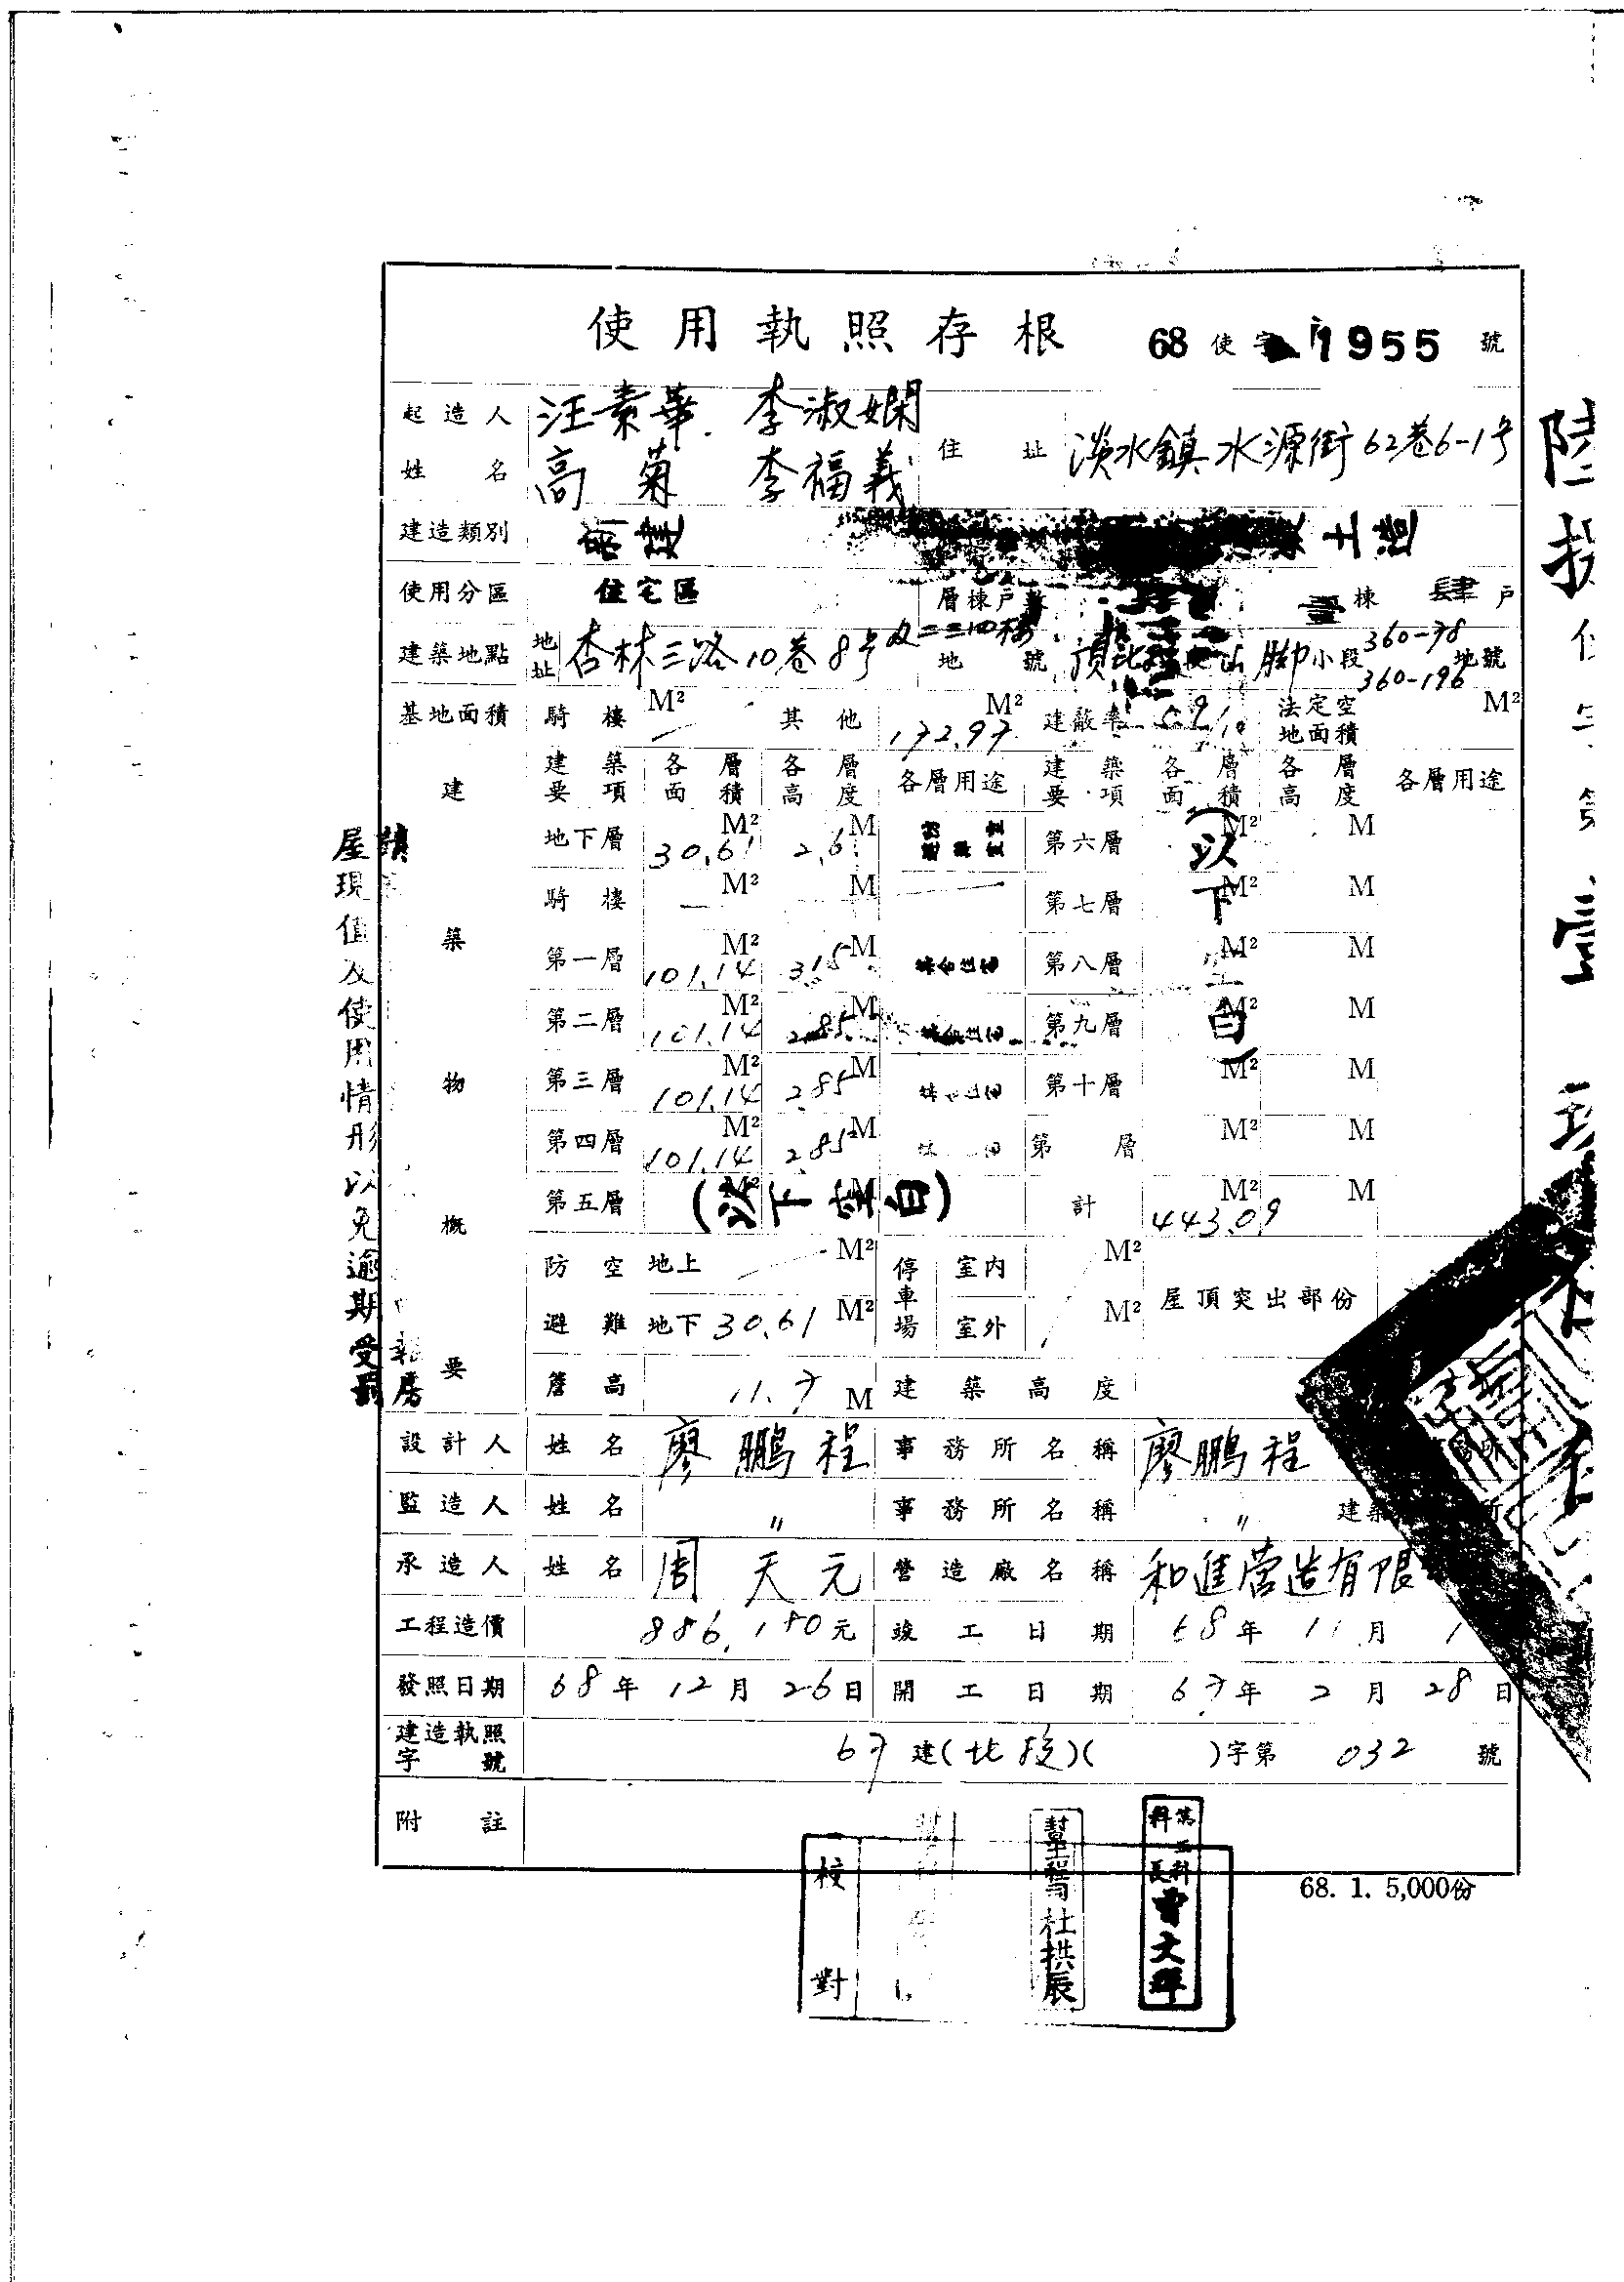 使用執照存根 68 使字 1955 號
起造人姓名 汪素華 李淑嫻 高菊 李福義 住址 淡水鎮水源街62巷6-1号
建造類別
使用分區 住宅區 層棟戶數 棟 肆 戶
建築地點 地址 杏林三路10巷8号及二三四樓 地號 頂 脚小段 360-78 360-196 地號
基地面積 騎樓 M² 其他 172.97 M² 建蔽率 法定空地面積 M²
建築要項 各層面積 各層高度 各層用途 建築要項 各層面積 各層高度 各層用途
地下層 30.61 M² 2.6 M 第六層 M² M
騎樓 M² M 第七層 M² M
第一層 101.14 M² 3.15 M 第八層 M² M
第二層 101.14 M² 2.85 M 第九層 M² M
第三層 101.14 M² 2.85 M 第十層 M² M
第四層 101.14 M² 2.85 M 第 層 M² M
第五層 (以下空白) 計 443.09 M² M
(以下空白)
建築物概要
防空避難 地上 M² 停車場 室內 M² 屋頂突出部份
地下 30.61 M² 室外 M²
簷高 11.7 M 建築高度
設計人 姓名 廖鵬程 事務所名稱 廖鵬程
監造人 姓名 〃 事務所名稱 〃 建築
承造人 姓名 周天元 營造廠名稱 和進营造有限
工程造價 886,180元 竣工日期 68年11月
發照日期 68年12月26日 開工日期 67年2月28日
建造執照字號 67 建(北段)( )字第 032 號
附註
68. 1. 5,000份
校對
杜拱辰
屋現值及使用情形以免逾期受罰